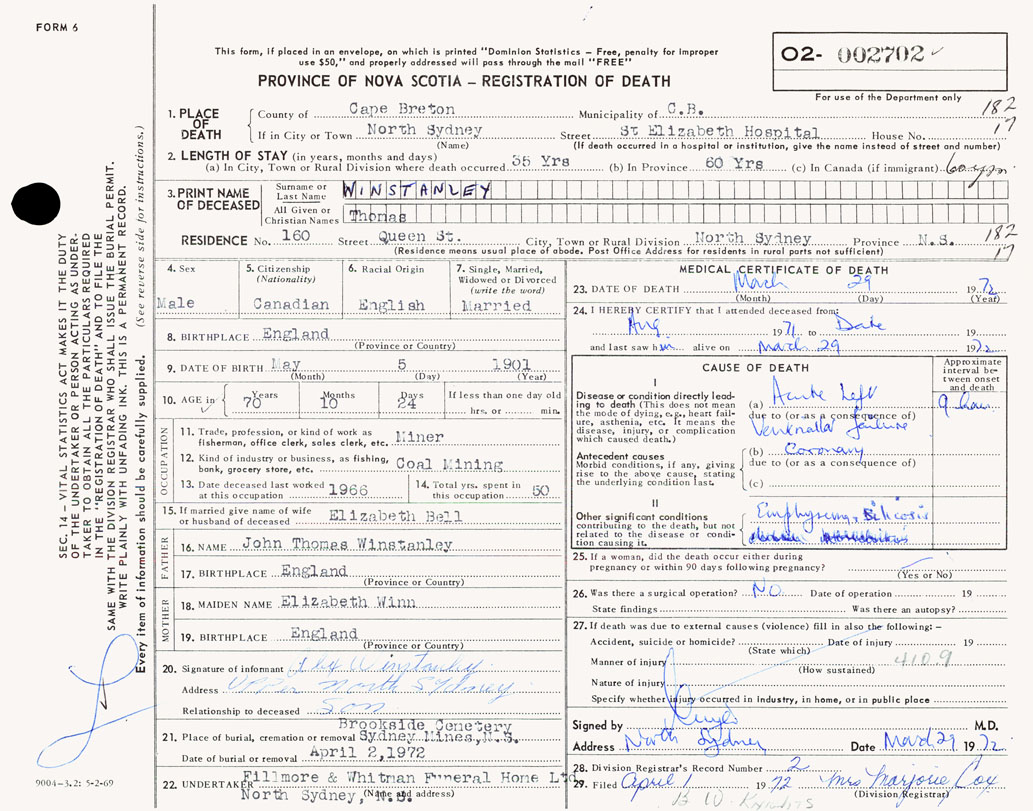 FORM 6
This form, if placed in an envelope, on which is printed "Dominion Statistics – Free, penalty for improper
use $50," and properly addressed will pass through the mail "FREE"
PROVINCE OF NOVA SCOTIA – REGISTRATION OF DEATH
02- 002702
For use of the Department only
1. PLACE OF DEATH County of Cape Breton Municipality of C.B. 182
If in City or Town North Sydney Street St Elizabeth Hospital House No. 17
(Name) (If death occurred in a hospital or institution, give the name instead of street and number)
2. LENGTH OF STAY (in years, months and days)
(a) In City, Town or Rural Division where death occurred 35 Yrs (b) In Province 60 Yrs (c) In Canada (if immigrant) 60 yrs
3. PRINT NAME OF DECEASED Surname or Last Name WINSTANLEY
All Given or Christian Names Thomas
RESIDENCE No. 160 Street Queen St. City, Town or Rural Division North Sydney Province N.S. 182
(Residence means usual place of abode. Post Office Address for residents in rural parts not sufficient) 17
4. Sex 5. Citizenship (Nationality) 6. Racial Origin 7. Single, Married, Widowed or Divorced (write the word)
Male Canadian English Married
8. BIRTHPLACE England
(Province or Country)
9. DATE OF BIRTH May 5 1901
(Month) (Day) (Year)
10. AGE in Years Months Days If less than one day old
70 10 24 hrs. or min.
OCCUPATION
11. Trade, profession, or kind of work as fisherman, office clerk, sales clerk, etc. Miner
12. Kind of industry or business, as fishing, bank, grocery store, etc. Coal Mining
13. Date deceased last worked at this occupation 1966 14. Total yrs. spent in this occupation 50
15. If married give name of wife or husband of deceased Elizabeth Bell
FATHER
16. NAME John Thomas Winstanley
17. BIRTHPLACE England
(Province or Country)
MOTHER
18. MAIDEN NAME Elizabeth Winn
19. BIRTHPLACE England
(Province or Country)
20. Signature of informant Winstanley
Address Upper North Sydney
Relationship to deceased Son
21. Place of burial, cremation or removal Brookside Cemetery Sydney Mines, N.S.
Date of burial or removal April 2, 1972
22. UNDERTAKER Fillmore & Whitman Funeral Home Ltd
North Sydney, N.S. (Name and address)
MEDICAL CERTIFICATE OF DEATH
23. DATE OF DEATH March 29 1972
(Month) (Day) (Year)
24. I HEREBY CERTIFY that I attended deceased from:
Aug 1971 to Date 19
and last saw him alive on March 29 1972
CAUSE OF DEATH Approximate interval between onset and death
I
Disease or condition directly leading to death (This does not mean the mode of dying, e.g., heart failure, asthenia, etc. It means the disease, injury, or complication which caused death.)
(a) Acute Left 9 hour
due to (or as a consequence of)
Ventricular failure
Antecedent causes
Morbid conditions, if any, giving rise to the above cause, stating the underlying condition last.
(b) Coronary
due to (or as a consequence of)
(c)
II
Other significant conditions contributing to the death, but not related to the disease or condition causing it. Emphysema, Silicosis
25. If a woman, did the death occur either during pregnancy or within 90 days following pregnancy?
(Yes or No)
26. Was there a surgical operation? No Date of operation 19
State findings Was there an autopsy?
27. If death was due to external causes (violence) fill in also the following: –
Accident, suicide or homicide? Date of injury 19
(State which)
Manner of injury 410.9
(How sustained)
Nature of injury
Specify whether injury occurred in industry, in home, or in public place
Signed by M.D.
Address North Sydney Date March 29 1972
28. Division Registrar's Record Number 2
29. Filed April 1 1972 Mrs Marjorie Cox
(Division Registrar)
SEC. 14 – VITAL STATISTICS ACT MAKES IT THE DUTY
OF THE UNDERTAKER OR PERSON ACTING AS UNDER-
TAKER TO OBTAIN ALL THE PARTICULARS REQUIRED
IN THE "REGISTRATION OF DEATH" AND TO FILE THE
SAME WITH THE DIVISION REGISTRAR WHO SHALL ISSUE THE BURIAL PERMIT.
WRITE PLAINLY WITH UNFADING INK. THIS IS A PERMANENT RECORD.
Every item of information should be carefully supplied. (See reverse side for instructions.)
9004-3.2: 5-2-69